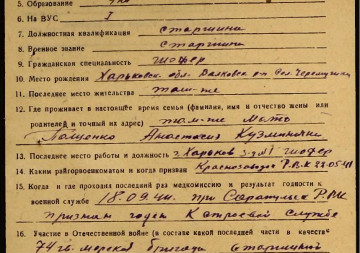 5. Образование
6. На ВУС I
7. Должностная квалификация старшина
8. Военное звание старшина
9. Гражданская специальность шофер
10. Место рождения Харьковск. обл. Валковск. р-н сел. Черемушн
11. Последнее место жительства там-же
12. Где проживает в настоящее время семья (фамилия, имя и отчество жены или
родителей и точный их адрес) там-же мать
Пащенко Анастасия Кузминична
13. Последнее место работы и должность г. Харьков шофер
14. Каким райгорвоенкоматом и когда призван Краснозаводск. Р.В.К.
15. Когда и где проходил последний раз медкомиссию и результат годности к
военной службе 18.09.44. при
признан годен к строевой службе
16. Участие в Отечественной войне (в составе какой последней части и в качестве
74 морская бригада старшиной